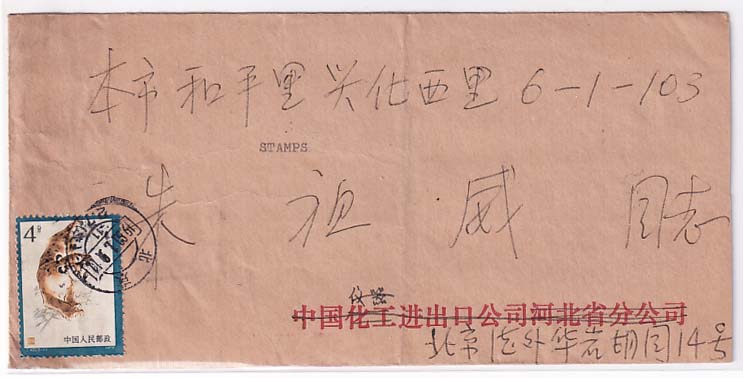 本市和平里兴化西里6-1-103
STAMPS
朱祖威 同志
4分
北京
中国人民邮政
仪器
中国化工进出口公司河北省分公司
北京 外华岩胡同14号